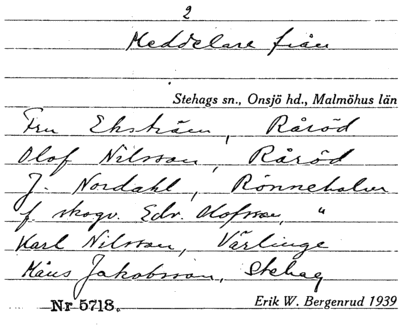 2
Meddelare från
Stehags sn., Onsjö hd., Malmöhus län
Fru Ekström, Råröd
Olof Nilsson, Råröd
J. Nordahl, Rönneholm
f. skogv. Edv. Olofsson, "
Karl Nilsson, Värlinge
Måns Jakobsson, Stehag
Nr 5718. Erik W. Bergenrud 1939